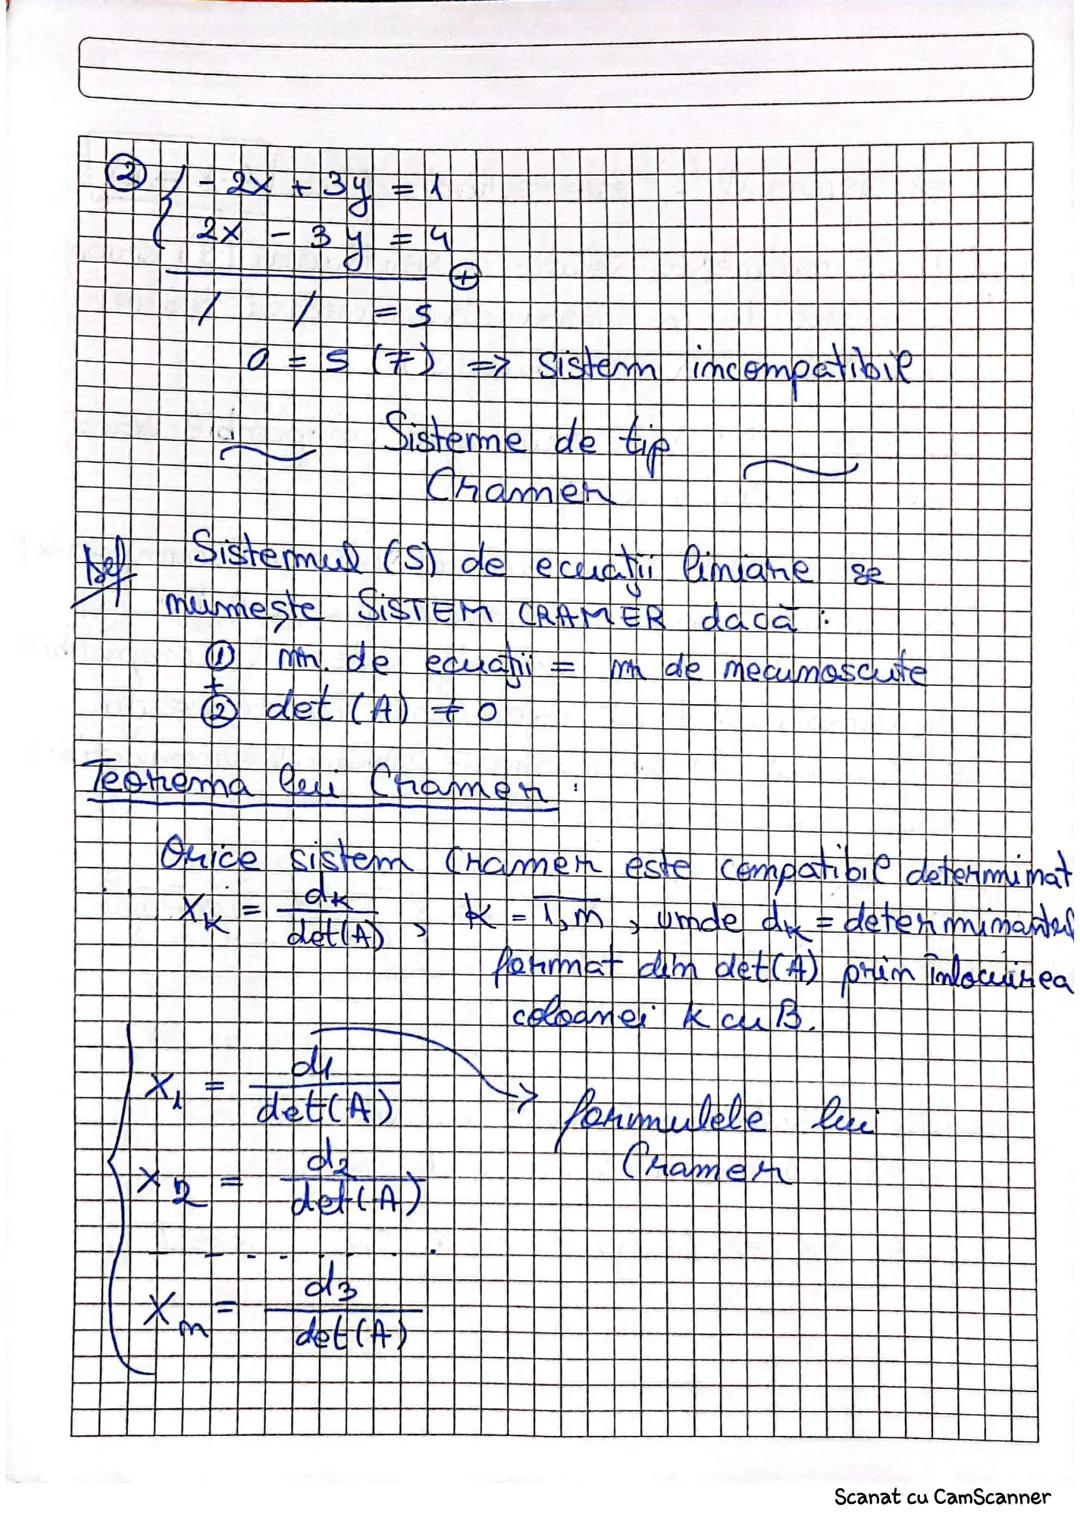 ② { -2x + 3y = 1
2x - 3y = 4
/ / = 5 ⊕
0 = 5 (F) => sistem incompatibil
Sisteme de tip
Cramer
Def Sistemul (S) de ecuații liniare se
numește SISTEM CRAMER dacă :
① nr. de ecuații = nr de necunoscute
+
② det (A) ≠ 0
Teorema lui Cramer :
Orice sistem Cramer este compatibil determinat
xk = dk / det(A) , k = 1,n , unde dk = determinantul
format din det(A) prin înlocuirea
coloanei k cu B.
x1 = d1 / det(A) → formulele lui
Cramer
x2 = d2 / det(A)
- - - - . . . .
xn = d3 / det(A)
Scanat cu CamScanner